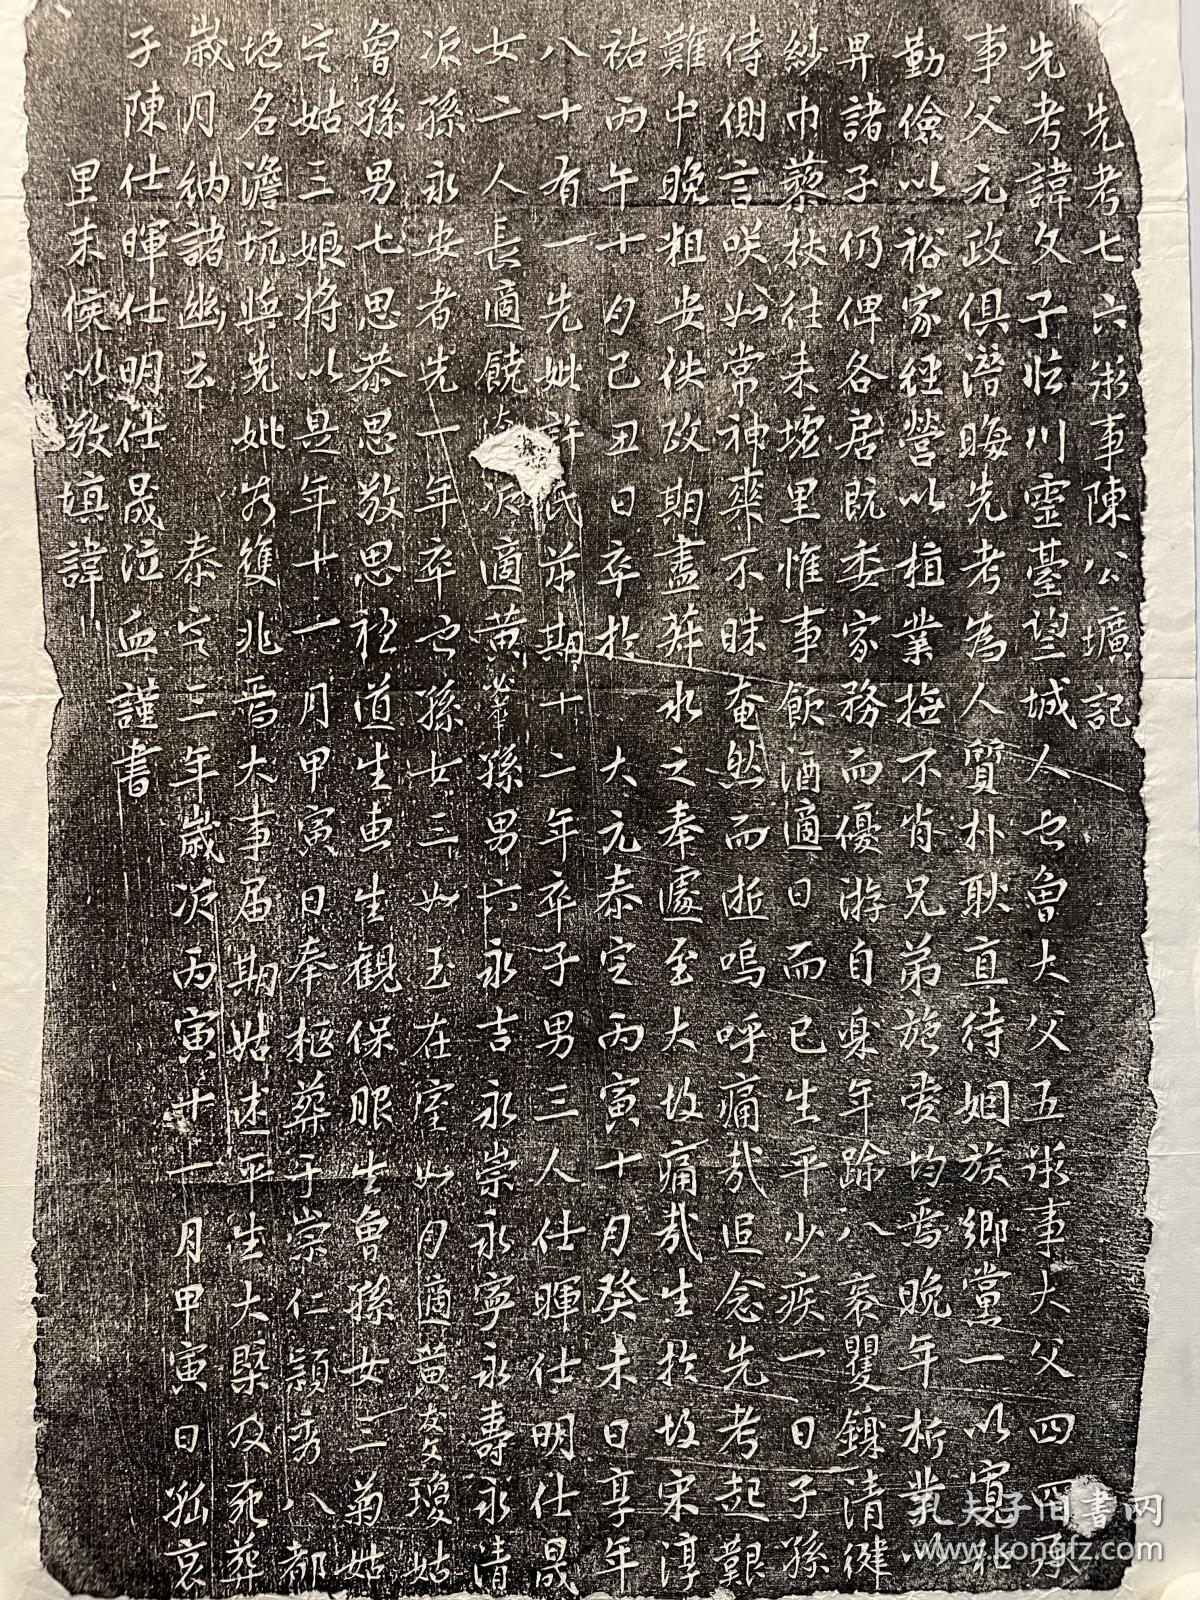 先考七六承事陳公壙記
先考諱文子臨川靈臺望城人也曾大父五承事大父四四承
事父元政俱潛晦先考為人質朴耿直待姻族鄉黨一以寬和
勤儉以裕家經營以植業撫不肖兄弟施愛均焉晚年析業以
畀諸子仍俾各居既委家務而優游自樂年踰八袠矍鑠清健
紗巾藜杖往来墟里惟事飲酒適日而已生平少疾一日子孫
侍側言咲如常神爽不昧奄然而逝嗚呼痛哉追念先考起艱
難中晚粗安佚政期盡菽水之奉遽至大故痛哉生於故宋淳
祐丙午十月己丑日卒於　大元泰定丙寅十月癸未日享年
八十有一先妣許氏前期十二年卒子男三人仕暉仕明仕晟
女二人長適饒次適黄孫男六永吉永崇永寧永壽永清
次孫永安者先一年卒也孫女三如玉在室如月適黄友文瓊姑
曾孫男七思恭思敬思程道生惠生觀保眼生曾孫女二菊姑
定姑三娘將以是年十一月甲寅日奉柩葬于崇仁穎秀八都
地名澹坑與先妣為雙兆焉大事届期姑述平生大槩及死葬
歲月納諸幽云　泰定三年歲次丙寅十一月甲寅日孤哀
子陳仕暉仕明仕晟泣血謹書
里末侯以敬填諱
孔夫子旧书网
www.kongfz.com